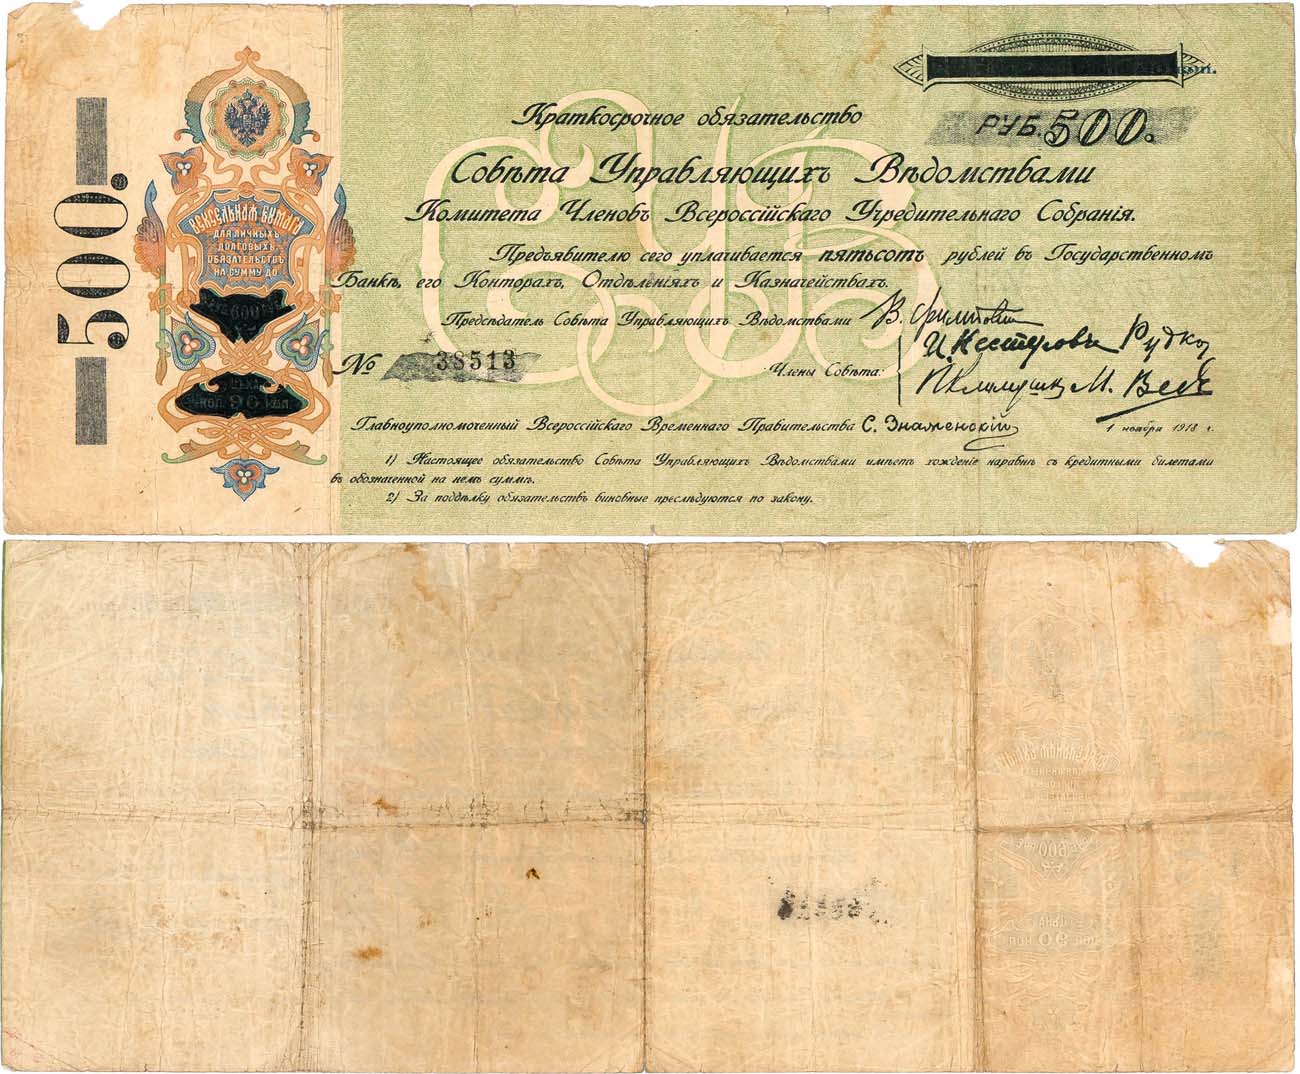 500.
ВЕКСЕЛЬНАЯ БУМАГА
ДЛЯ ЛИЧНЫХЪ
ДОЛГОВЫХЪ
ОБЯЗАТЕЛЬСТВЪ
НА СУММУ ДО
600
ЦѢНА
90 коп.
коп.
РУБ. 500.
Краткосрочное обязательство
Совѣта Управляющихъ Вѣдомствами
Комитета Членовъ Всероссійскаго Учредительнаго Собранія.
Предъявителю сего уплачивается пятьсотъ рублей въ Государственномъ
Банкѣ, его Конторахъ, Отдѣленіяхъ и Казначействахъ.
Предсѣдатель Совѣта Управляющихъ Вѣдомствами В. Филипповъ
И. Нестеровъ Рудко
№ 38513
Члены Совѣта: М. Вед
Главноуполномоченный Всероссійскаго Временнаго Правительства С. Знаменскій
1 ноября 1918 г.
1) Настоящее обязательство Совѣта Управляющихъ Вѣдомствами имѣетъ хожденіе наравнѣ съ кредитными билетами
въ обозначенной на немъ суммѣ.
2) За поддѣлку обязательствъ виновные преслѣдуются по закону.